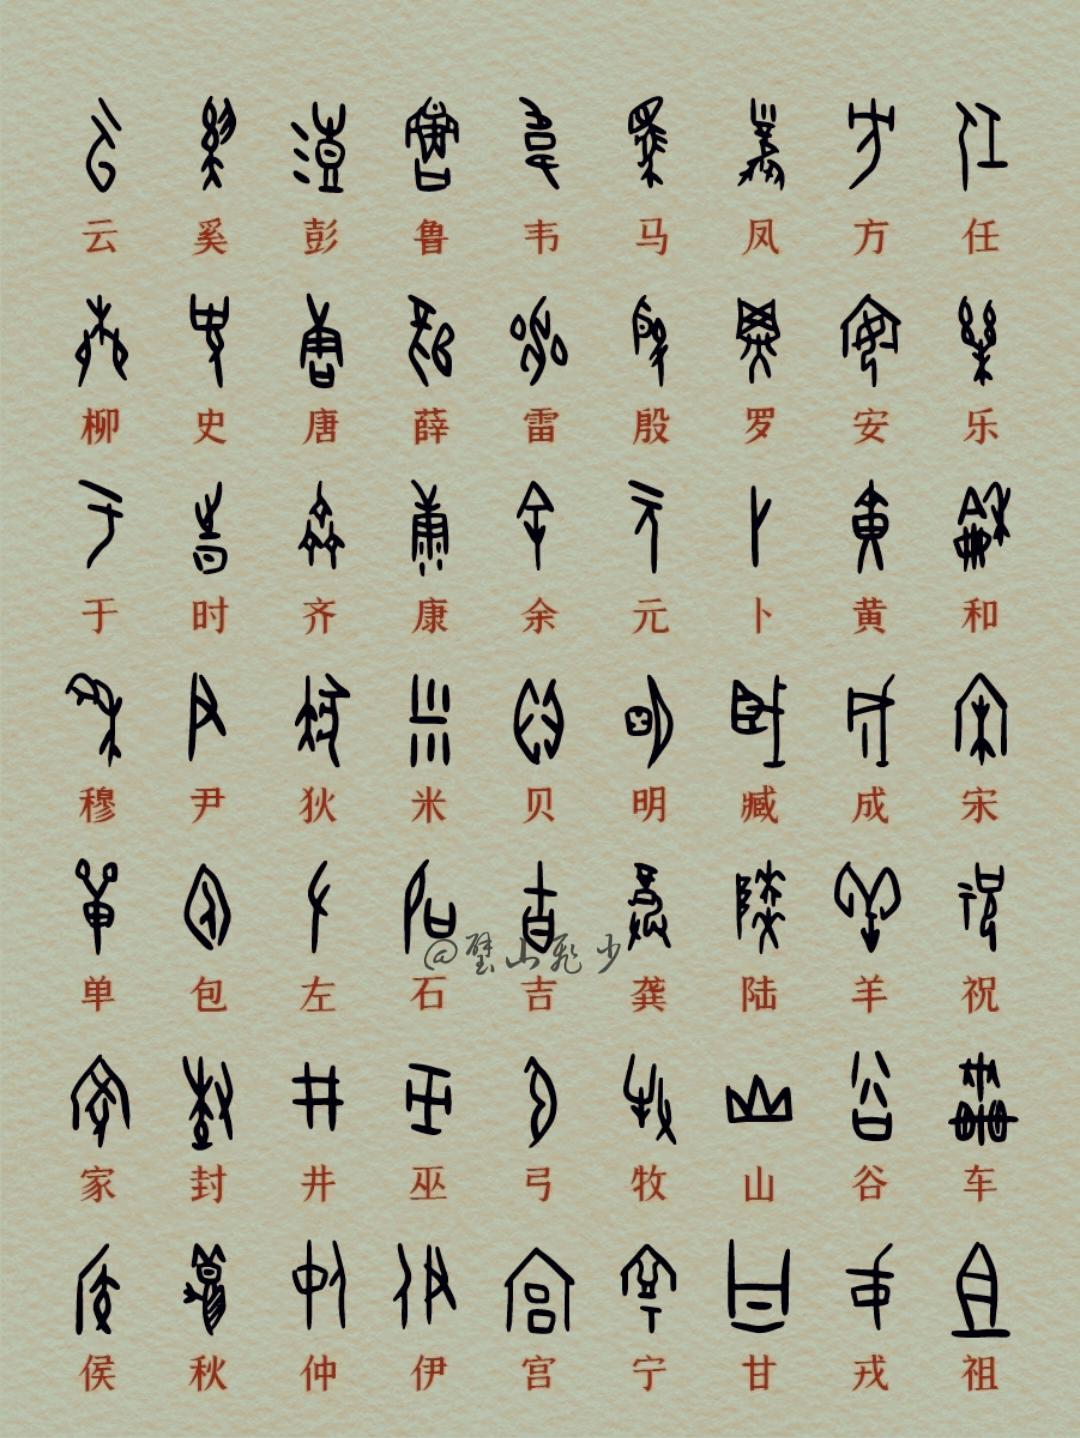 云 奚 彭 鲁 韦 马 凤 方 任
柳 史 唐 薛 雷 殷 罗 安 乐
于 时 齐 康 余 元 卜 黄 和
穆 尹 狄 米 贝 明 臧 成 宋
单 包 左 石 吉 龚 陆 羊 祝
@璧山飛少
家 封 井 巫 弓 牧 山 谷 车
侯 秋 仲 伊 宫 宁 甘 戎 祖